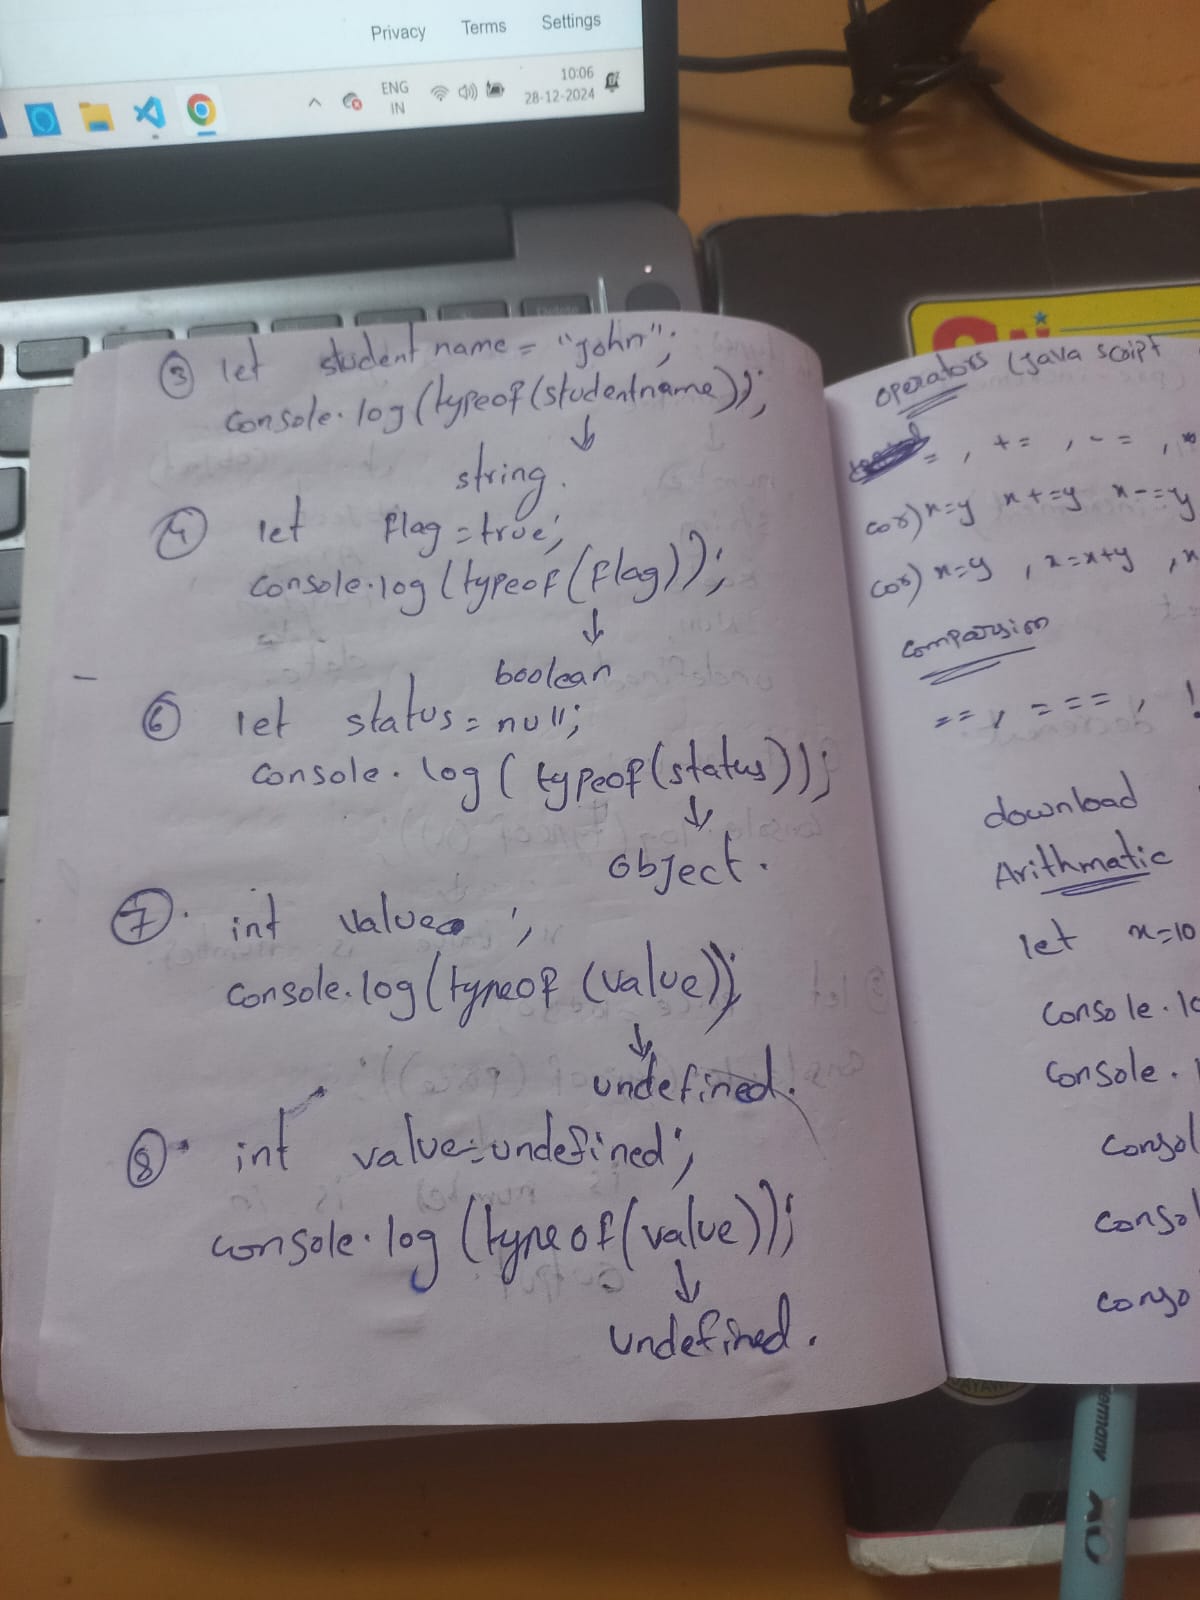 Privacy Terms Settings
ENG
IN
10:06
28-12-2024
③ let student name = "john";
console.log(typeof(studentname));
↓
string.
④ let flag=true;
console.log(typeof(flag));
↓
boolean
⑥ let status=null;
console.log(typeof(status));
↓
object.
⑦. int value ;
console.log(typeof (value));
↓
undefined.
⑧. int value=undefined;
console.log(typeof(value));
↓
undefined.
operators (java script
= , += , -= ,
(or) x=y x+=y x-=y
(or) x=y , x=x+y , x
comparsion
== , === , !
download
Arithmatic
let x=10
console.lo
console.
consol
consol
conso
Germany
XO